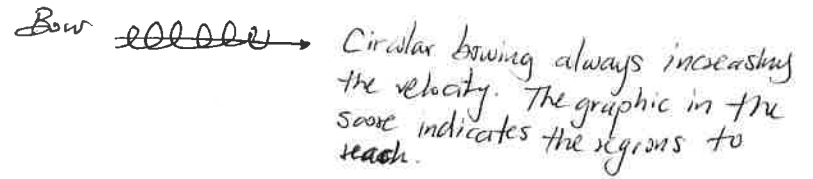 Bow
Circular bowing always increasing
the velocity. The graphic in the
score indicates the regions to
reach.